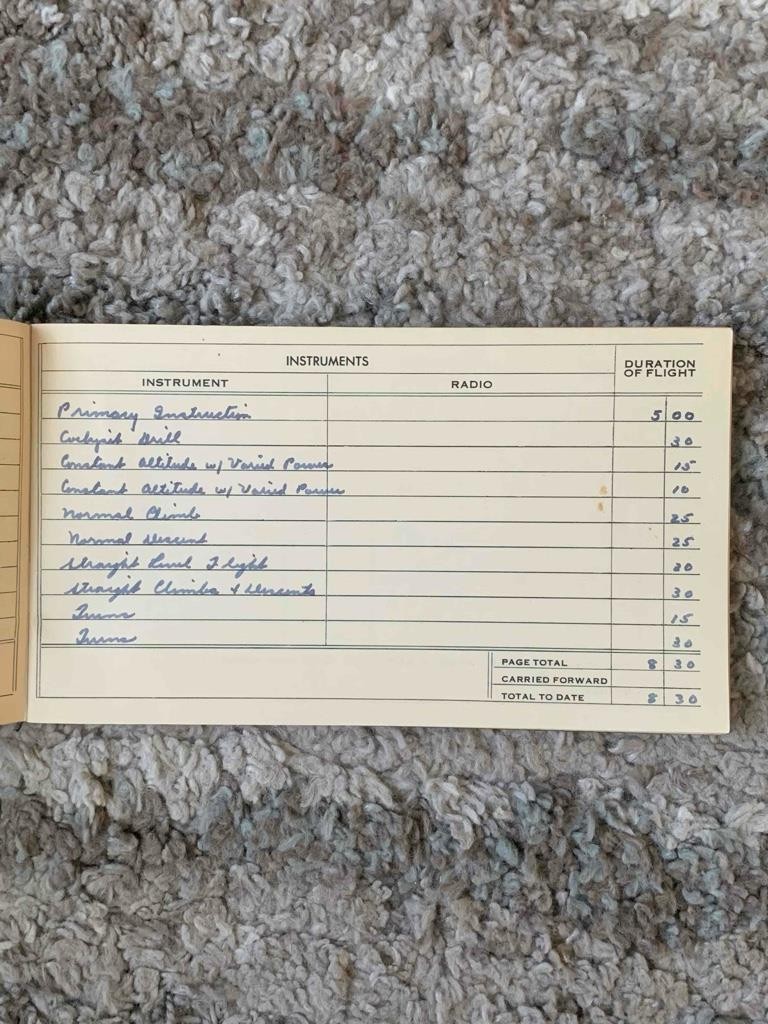 INSTRUMENTS
DURATION OF FLIGHT
INSTRUMENT RADIO
Primary Instruction 5 00
Cockpit Drill 30
Constant Altitude w/ Varied Power 15
Constant Altitude w/ Varied Power 10
Normal Climb 25
Normal Descent 25
Straight Level Flight 30
Straight Climbs & Descents 30
Turns 15
Turns 30
PAGE TOTAL 8 30
CARRIED FORWARD
TOTAL TO DATE 8 30